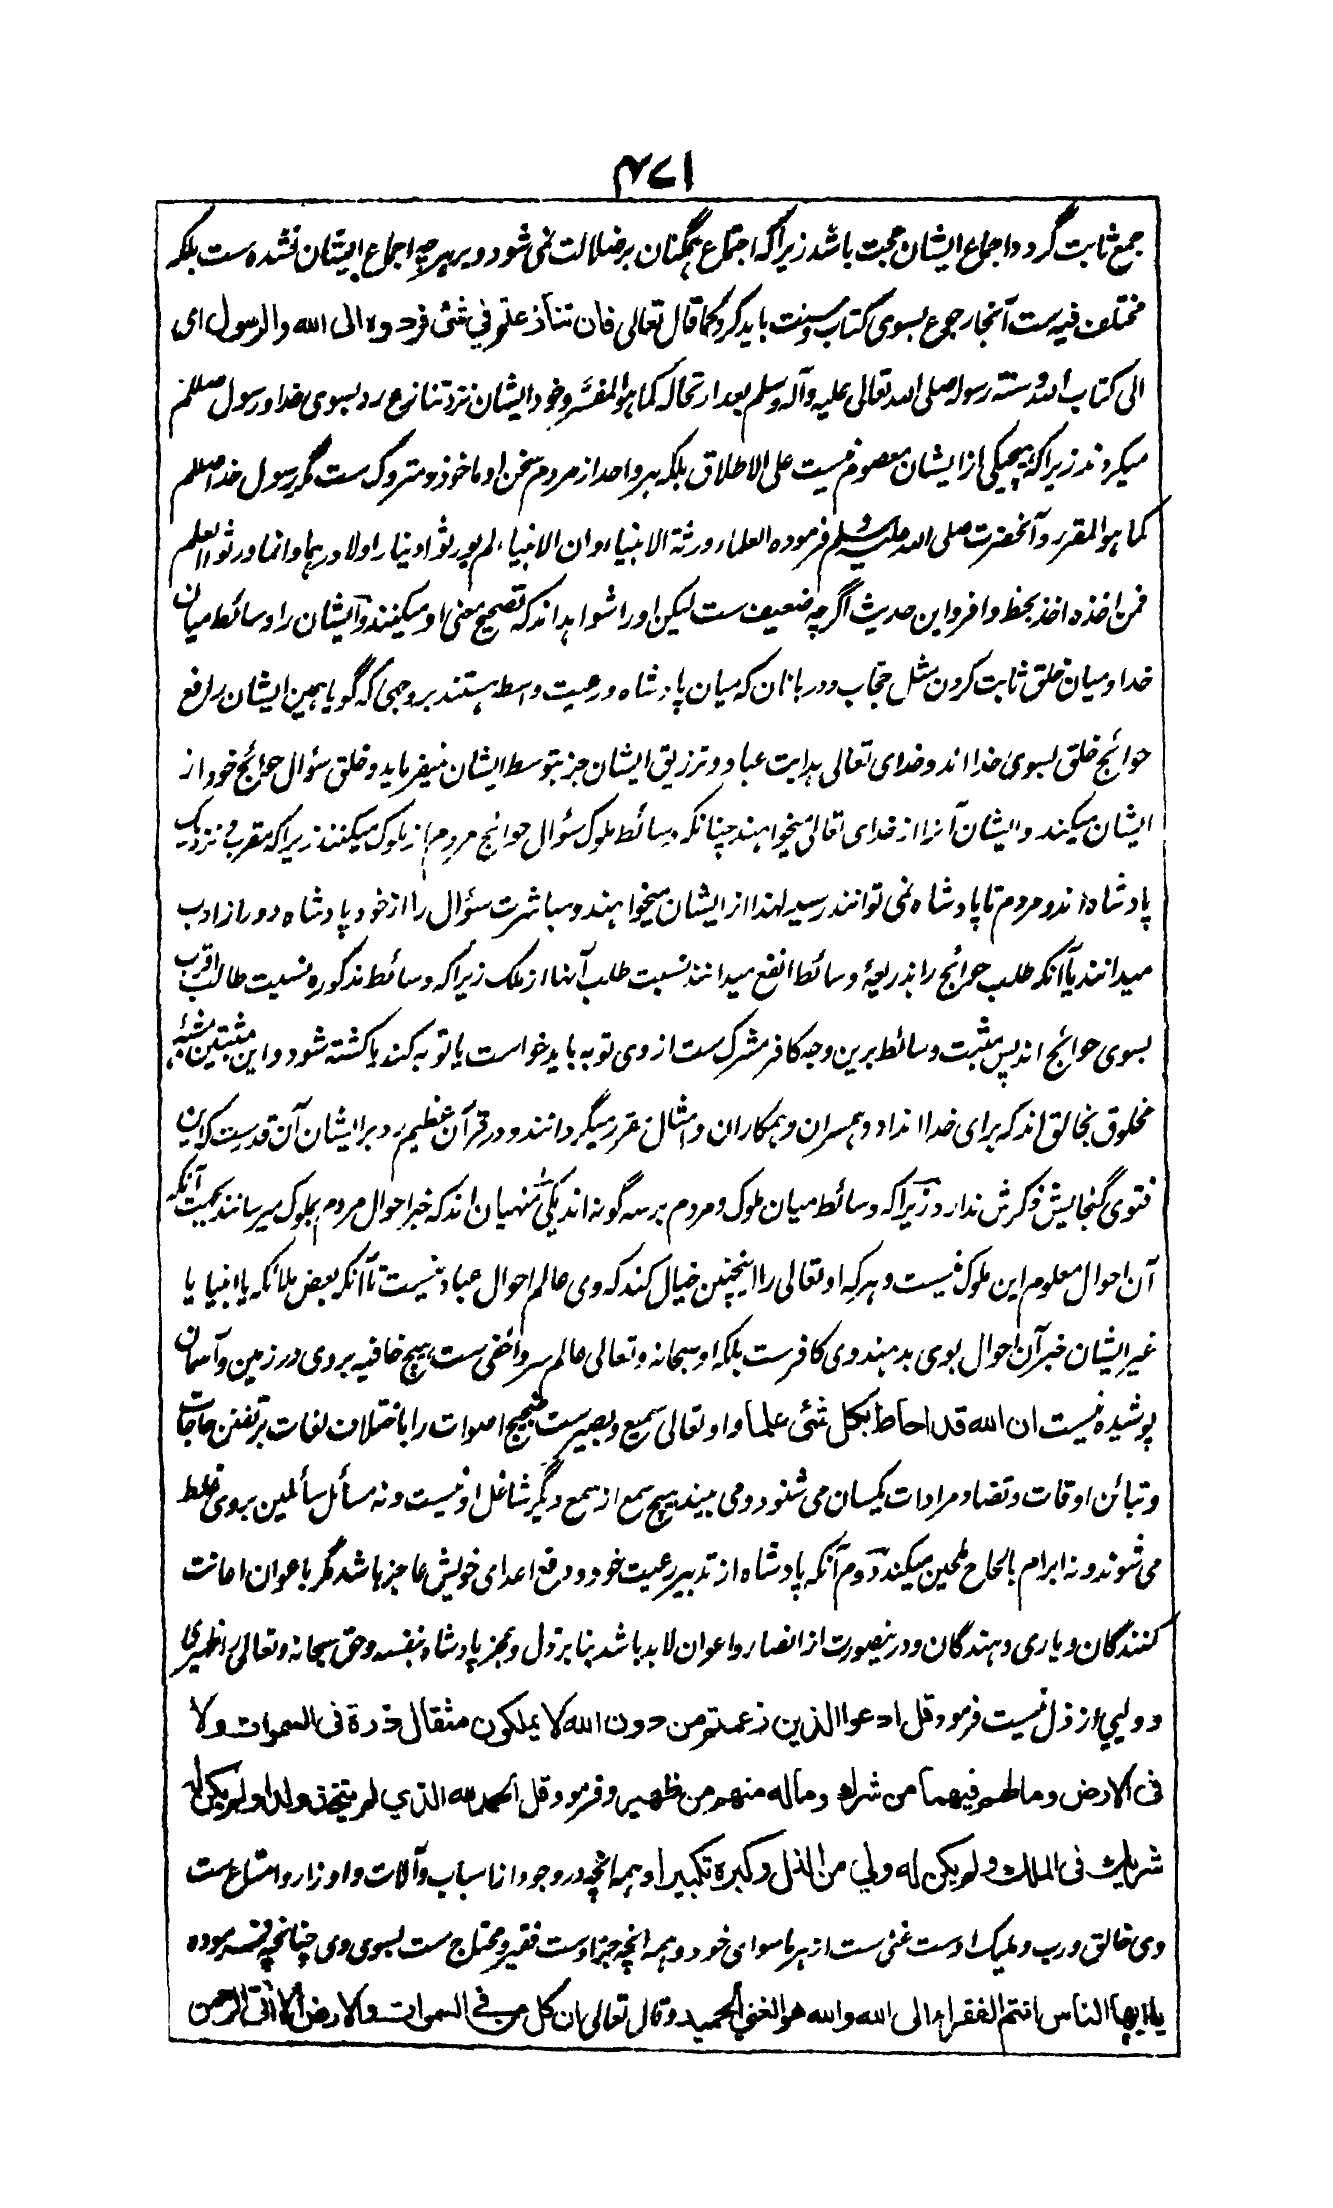 ۴۷۱
جمع ثابت گردد اجماع ایشان حجت باشد زیراکه اجتماع همگنان بر ضلالت نمی شود و بر هرچه اجماع ایشان نشده ست بلکه
مختلف فیه ست آنجا رجوع بسوی کتاب و سنت باید کرد کما قال تعالی فان تنازعتم فی شئ فردوه الی الله والرسول ای
الی کتاب الله وسنته رسوله صلی الله تعالی علیه وآله وسلم بعد ارتحاله کما هو المفسر و خود ایشان نزد تنازع رد بسوی خدا و رسول صللم
میکردند زیراکه هیچیکی از ایشان معصوم نیست علی الاطلاق بلکه هر واحد از مردم سخن او ماخوذ و متروک ست مگر رسول خدا صللم
کما هو المقرر و آنحضرت صلی الله علیه وسلم فرموده العلماء ورثة الانبیاء وان الانبیاء لم یورثوا دینارا ولا درهما وانما ورثوا العلم
فمن اخذه اخذ بحظ وافر و این حدیث اگرچه ضعیف ست لیکن او را شواهد اند که تصحیح معنی او میکنند و ایشان را وسائط میان
خدا و میان خلق ثابت کردن مثل حجاب و دربانان که میان پادشاه و رعیت واسطه هستند بروجهی که گویا همین ایشان رافع
حوائج خلق بسوی خدا اند و خدای تعالی هدایت عباد و ترزیق ایشان جز بتوسط ایشان نمیفرماید و خلق سؤال حوائج خود از
ایشان میکند و ایشان آنرا از خدای تعالی میخواهند چنانکه وسائط ملوک سؤال حوائج مردم از ملوک میکنند زیراکه مقرب و نزدیک
پادشاه اند و مردم تا پادشاه نمی توانند رسید لهذا از ایشان میخواهند و مباشرت سؤال را از خود پادشاه دور از ادب
میدانند یا آنکه طلب حوائج را بذریعۀ وسائط انفع میدانند نسبت طلب آنها از ملک زیراکه وسائط مذکوره نسبت طالب اقرب
بسوی حوائج اند پس مثبت وسائط برین وجه کافر مشرک ست از وی توبه باید خواست یا توبه کند یا کشته شود و این مثبتین مشبه
مخلوق بخالق اند که برای خدا انداد و همسران و همکاران و امثال مقرر میگردانند و در قرآن عظیم رد بر ایشان آن قدرست که این
فتوی گنجایش ذکرش ندارد زیراکه وسائط میان ملوک و مردم بر سه گونه اند یکی منهیان اند که خبر احوال مردم بملوک میرسانند بجهت آنکه
آن احوال معلوم این ملوک نیست و هرکه او تعالی را اینچنین خیال کند که وی عالم احوال عباد نیست تا آنکه بعض ملائکه یا انبیا یا
غیر ایشان خبر آن احوال بوی بدهند وی کافرست بلکه او سبحانه و تعالی عالم سر و اخفی ست هیچ خافیه بروی در زمین و آسمان
پوشیده نیست ان الله قد احاط بکل شئی علما و او تعالی سمیع و بصیرست ضجیج اصوات را باختلاف لغات بر تفنن حاجات
و تبائن اوقات و تضاد مرادات یکسان می شنود و می بیند هیچ سمع از سمع دیگر شاغل او نیست و نه مسائل سائلین بروی غلط
می شوند و نه ابرام بالحاح ملحین میکند دوم آنکه پادشاه از تدبیر رعیت خود و دفع اعدای خویش عاجز باشد مگر باعوان اعانت
کنندگان و یاری دهندگان و درینصورت از انصار و اعوان لابد باشد بنا بر ذل و عجز پادشاه بنفسه و حق سبحانه و تعالی را ظهیری
و ولیی از ذل نیست فرمود قل ادعوا الذین زعمتم من دون الله لا یملکون مثقال ذرة فی السموات ولا
فی الارض وما لهم فیهما من شرك وماله منهم من ظهیر و فرمود قل الحمد لله الذی لم یتخذ ولدا ولم یکن له
شریك فی الملك ولم یکن له ولی من الذل وکبره تکبیرا و همه انچه در وجود از اسباب و آلات و اوزار و امتاع ست
وی خالق و رب و ملیک اوست غنی ست از هر ماسوای خود و همه انچه جز اوست فقیر و محتاج ست بسوی وی چنانچه فرموده
یاایها الناس انتم الفقراء الی الله والله هو الغنی الحمید وقال تعالی ان کل من فی السموات والارض الا آتی الرحمن